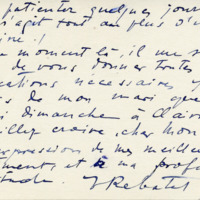 patienter quelques jour
s'agit tout au plus d'u
ire !
moment là, il me s
de vous donner toutes
cations nécessaires
s de mon mari que
i dimanche à Clairv
illez croire, cher Mon
expression de mes meilleu
ments et ma profo
itude
Rebatet